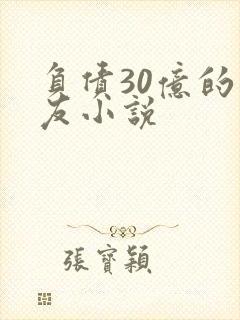 負債30億的
友小說
張寶穎